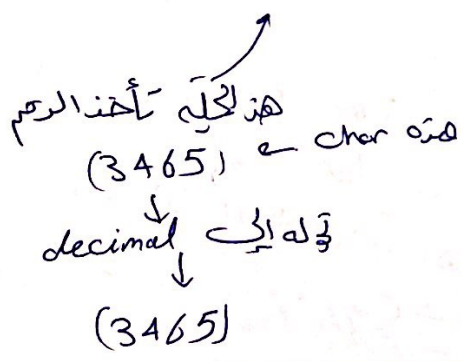 هذه الجملة تأخذ الرقم
(3465) ← char هذه
تحوله إلى decimal
(3465)